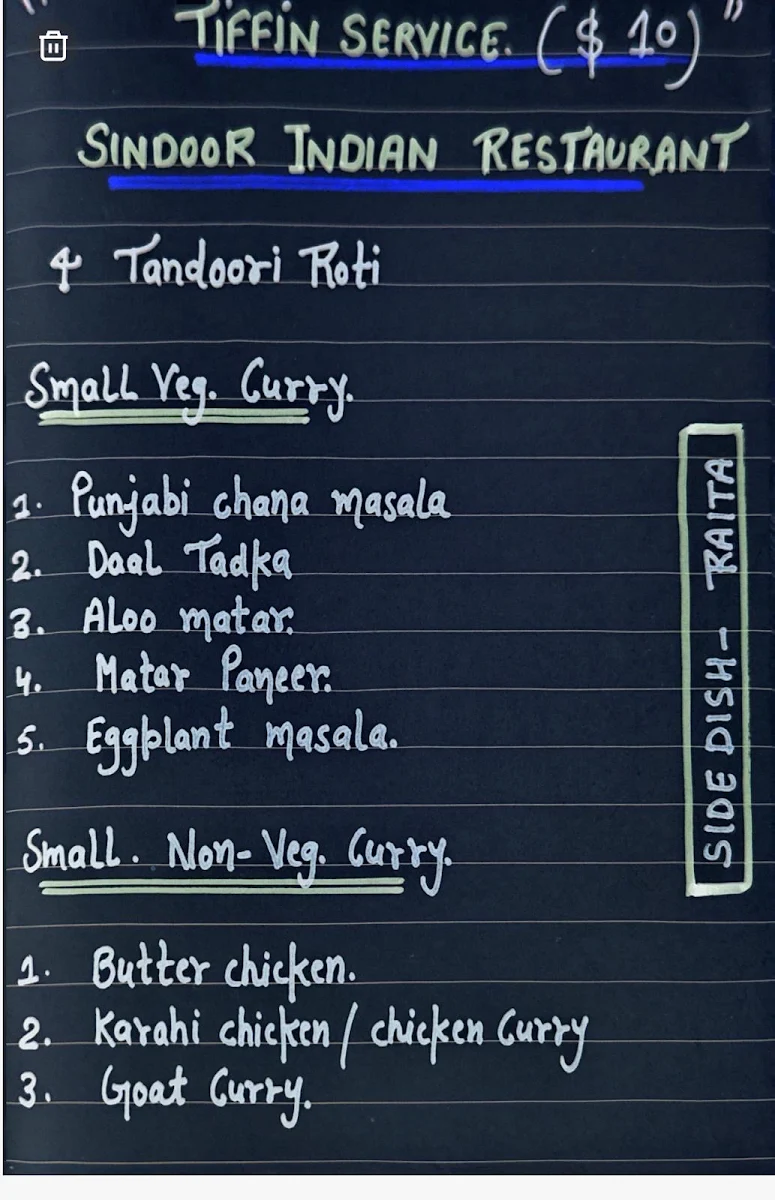 " TIFFIN SERVICE. ($ 10) "
SINDOOR INDIAN RESTAURANT
4 Tandoori Roti
Small Veg. Curry.
1. Punjabi chana masala
2. Daal Tadka
3. Aloo matar.
4. Matar Paneer.
5. Eggplant masala.
SIDE DISH- RAITA
Small. Non-Veg. Curry.
1. Butter chicken.
2. Karahi chicken / chicken Curry
3. Goat Curry.